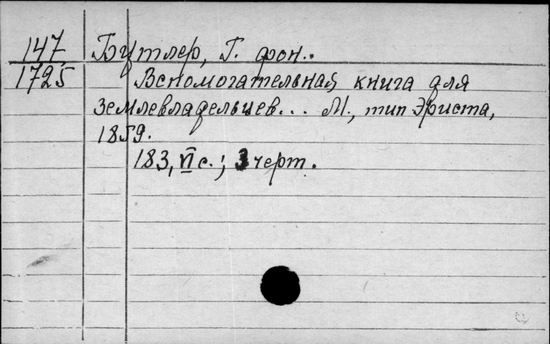 147
1725
Бутлер, Г. фон.
Вспомогательная книга для
землевладельцев... М., тип Эриста,
1859.
183, VI с.; 3 черт.